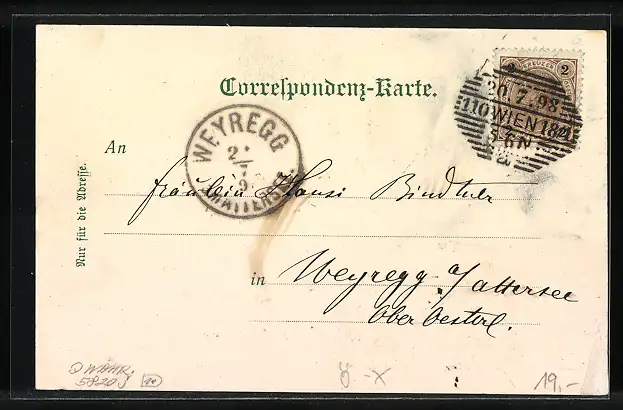 2 KREUZER 2
Correspondenz-Karte.
20.7.98
110 WIEN 18/1
WEYREGG
2/7
An
Fräulein Hansi Bindtner
Nur für die Adresse.
in Weyregg a/Attersee
Ober Oesterr.
5820
10
Ö-X
19,-